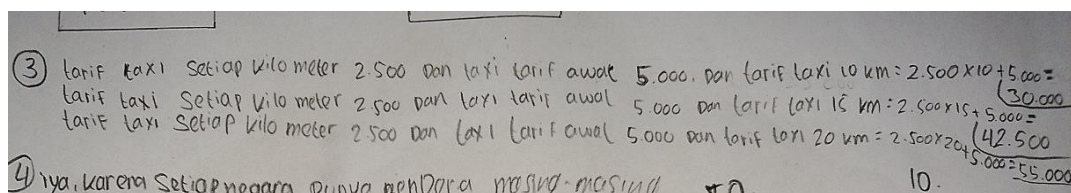 ③ tarif taxi setiap kilo meter 2.500 Dan taxi tarif awal 5.000. Dan tarif taxi 10 km = 2.500 x 10 + 5.000 = 30.000
tarif taxi setiap kilo meter 2.500 Dan taxi tarif awal 5.000 Dan tarif taxi 15 km = 2.500 x 15 + 5.000 = 42.500
tarif taxi setiap kilo meter 2.500 Dan taxi tarif awal 5.000 Dan tarif taxi 20 km = 2.500 x 20 + 5.000 = 55.000
④ iya, karena setiap negara punya benDera masing-masing
10.